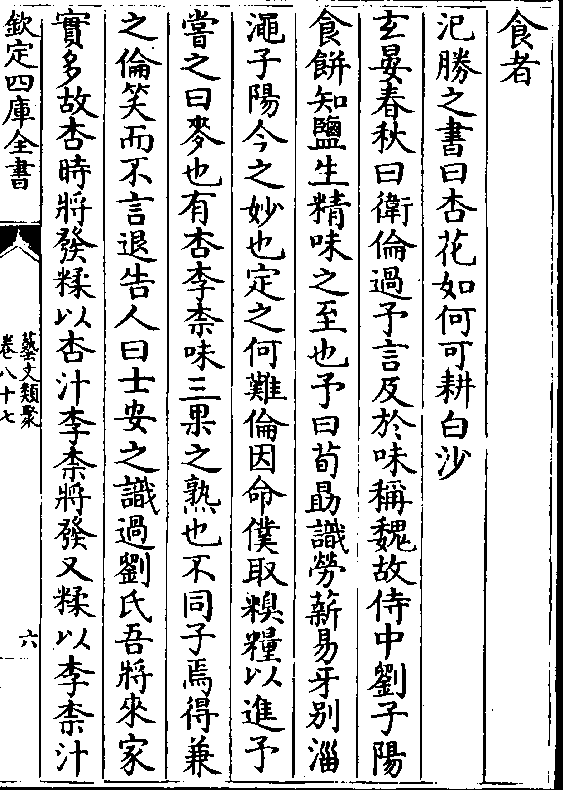 食者
汜勝之書曰杏花如何可耕白沙
玄晏春秋曰衛倫過予言及於味稱魏故侍中劉子陽
食餅知鹽生精味之至也予曰荀勗識勞薪易牙別淄
澠子陽今之妙也定之何難倫因命僕取糗糧以進予
嘗之曰麥也有杏李柰味三果之熟也不同子焉得兼
之倫笑而不言退告人曰士安之識過劉氏吾將來家
實多故杏時將發糅以杏汁李柰將發又糅以李柰汁
欽定四庫全書
藝文類聚
卷八十七
六